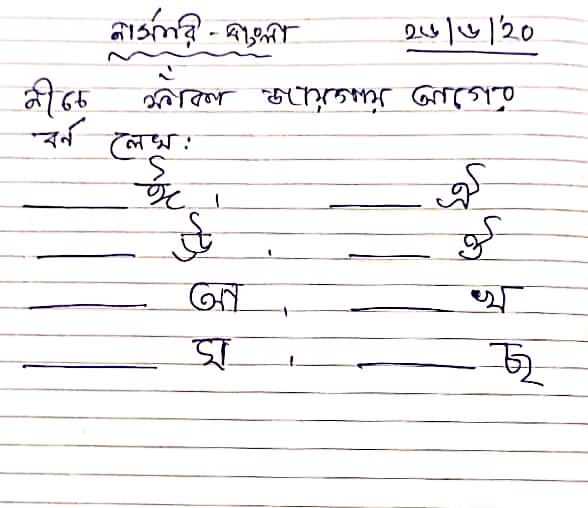 নার্সারি - বাংলা ২৬/৬/'২০
নীচে ফাঁকা জায়গায় আগের
বর্ন লেখ:
______ ঈ , ______ ঐ
______ ঊ , ______ ঔ
______ আ , ______ খ
______ ঘ , ______ ছ